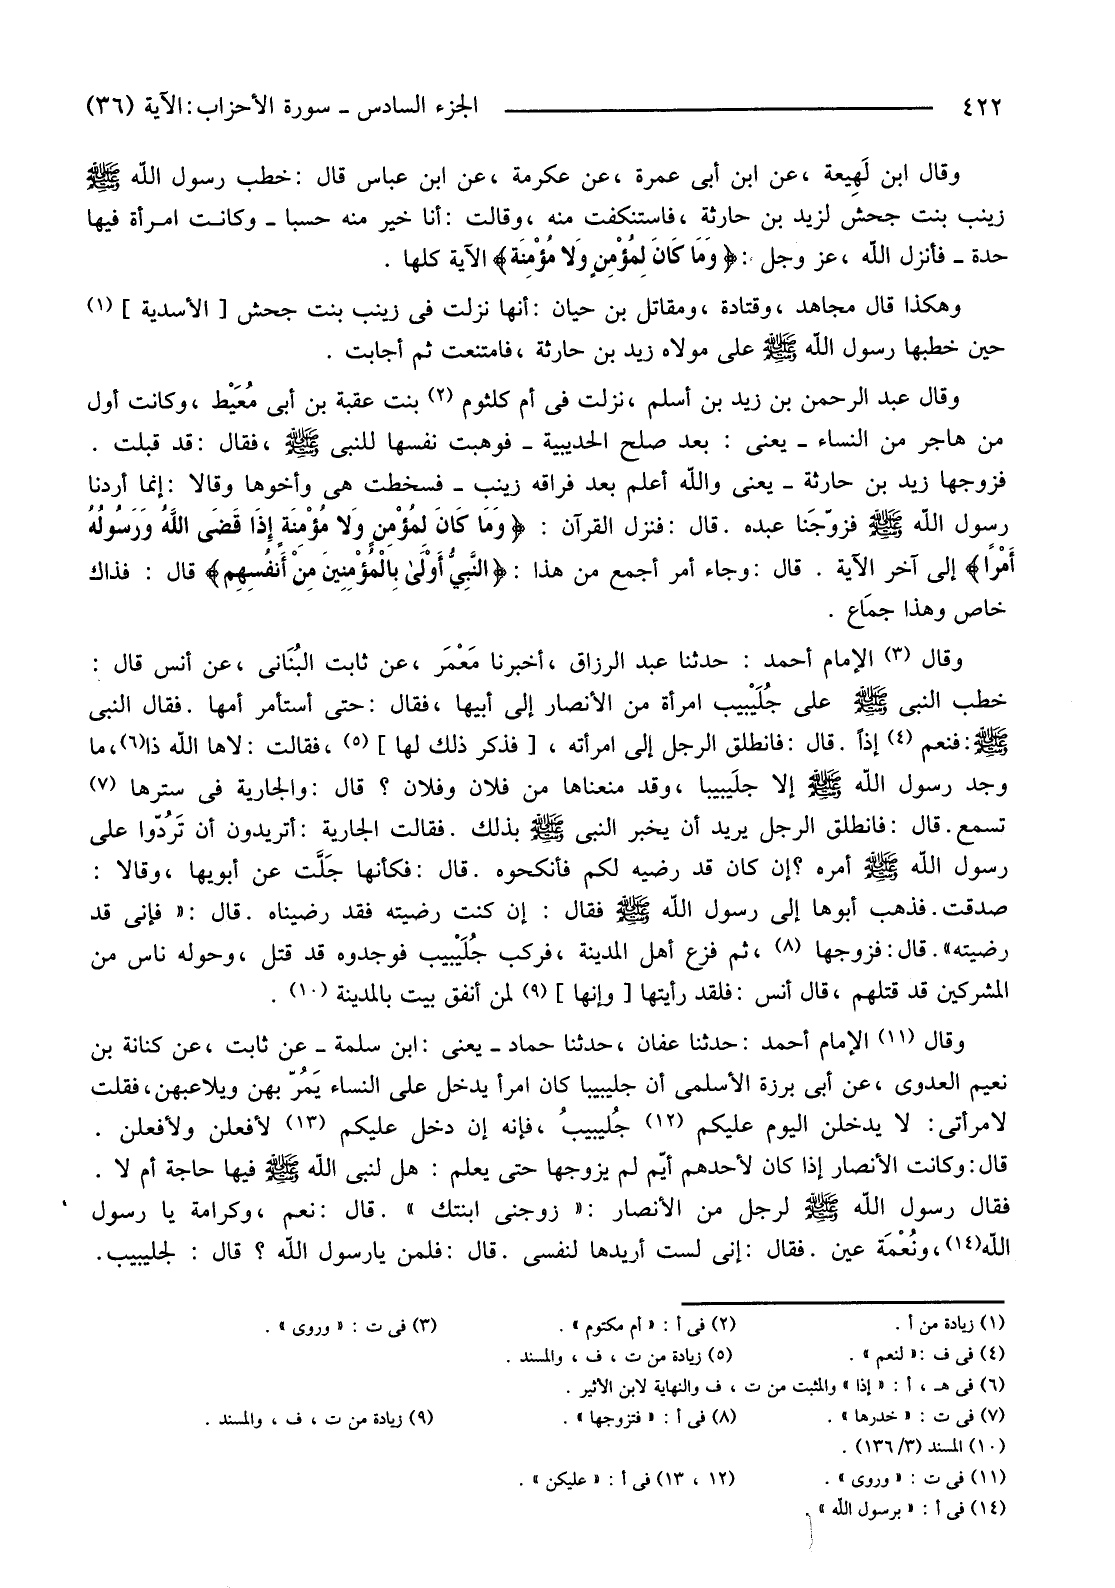 ٤٢٢ الجزء السادس ـ سورة الأحزاب : الآية (٣٦)
وقال ابن لَهِيعة ، عن ابن أبى عمرة ، عن عكرمة ، عن ابن عباس قال : خطب رسول الله ﷺ
زينب بنت جحش لزيد بن حارثة ، فاستنكفت منه ، وقالت : أنا خير منه حسبا ـ وكانت امرأة فيها
حدة ـ فأنزل الله ، عز وجل : ﴿ وَمَا كَانَ لِمُؤْمِنٍ وَلا مُؤْمِنَة﴾ الآية كلها .
وهكذا قال مجاهد ، وقتادة ، ومقاتل بن حيان : أنها نزلت فى زينب بنت جحش [ الأسدية ] (١)
حين خطبها رسول الله ﷺ على مولاه زيد بن حارثة ، فامتنعت ثم أجابت .
وقال عبد الرحمن بن زيد بن أسلم ، نزلت فى أم كلثوم (٢) بنت عقبة بن أبى مُعَيْط ، وكانت أول
من هاجر من النساء ـ يعنى : بعد صلح الحديبية ـ فوهبت نفسها للنبى ﷺ ، فقال : قد قبلت .
فزوجها زيد بن حارثة ـ يعنى والله أعلم بعد فراقه زينب ـ فسخطت هى وأخوها وقالا : إنما أردنا
رسول الله ﷺ فزوّجَنا عبده . قال : فنزل القرآن : ﴿ وَمَا كَانَ لِمُؤْمِنٍ وَلا مُؤْمِنَةٍ إِذَا قَضَى اللَّهُ وَرَسُولُهُ
أَمْرًا﴾ إلى آخر الآية . قال : وجاء أمر أجمع من هذا : ﴿النَّبِيُّ أَوْلَىٰ بِالْمُؤْمِنِينَ مِنْ أَنفُسِهِم﴾ قال : فذاك
خاص وهذا جمَاع .
وقال (٣) الإمام أحمد : حدثنا عبد الرزاق ، أخبرنا مَعْمَر ، عن ثابت البُنَانى ، عن أنس قال :
خطب النبى ﷺ على جُلَيْبِيب امرأة من الأنصار إلى أبيها ، فقال : حتى أستأمر أمها . فقال النبى
ﷺ : فنعم (٤) إذاً . قال : فانطلق الرجل إلى امرأته ، [ فذكر ذلك لها ] (٥) ، فقالت : لاها الله ذا(٦)، ما
وجد رسول الله ﷺ إلا جلَيبيبا ، وقد منعناها من فلان وفلان ؟ قال : والجارية فى سترها (٧)
تسمع . قال : فانطلق الرجل يريد أن يخبر النبى ﷺ بذلك . فقالت الجارية : أتريدون أن تَرُدّوا على
رسول الله ﷺ أمره ؟ إن كان قد رضيه لكم فأنكحوه . قال : فكأنها جَلَّت عن أبويها ، وقالا :
صدقت . فذهب أبوها إلى رسول الله ﷺ فقال : إن كنت رضيته فقد رضيناه . قال : « فإنى قد
رضيته» . قال : فزوجها (٨) ، ثم فزع أهل المدينة ، فركب جُلَيْبيب فوجدوه قد قتل ، وحوله ناس من
المشركين قد قتلهم ، قال أنس : فلقد رأيتها [ وإنها ] (٩) لمن أنفق بيت بالمدينة (١٠) .
وقال (١١) الإمام أحمد : حدثنا عفان ، حدثنا حماد ـ يعنى : ابن سلمة ـ عن ثابت ، عن كنانة بن
نعيم العدوى ، عن أبى برزة الأسلمى أن جليبيبا كان امرأ يدخل على النساء يَمُرّ بهن ويلاعبهن، فقلت
لامرأتى : لا يدخلن اليوم عليكم (١٢) جُليبيبُ ، فإنه إن دخل عليكم (١٣) لأفعلن ولأفعلن .
قال : وكانت الأنصار إذا كان لأحدهم أيّم لم يزوجها حتى يعلم : هل لنبى الله ﷺ فيها حاجة أم لا .
فقال رسول الله ﷺ لرجل من الأنصار : « زوجنى ابنتك » . قال : نعم ، وكرامة يا رسول
الله(١٤)، ونُعْمَة عين . فقال : إنى لست أريدها لنفسى . قال : فلمن يارسول الله ؟ قال : لجليبيب .
(١) زيادة من أ . (٢) فى أ : « أم مكتوم » . (٣) فى ت : « وروى » .
(٤) فى ف : « لنعم » . (٥) زيادة من ت ، ف ، والمسند .
(٦) فى هـ ، أ : « إذا » والمثبت من ت ، ف والنهاية لابن الأثير .
(٧) فى ت : « خدرها » . (٨) فى أ : « فتزوجها » . (٩) زيادة من ت ، ف ، والمسند .
(١٠) المسند (٣/ ١٣٦) .
(١١) فى ت : « وروى » . (١٢ ، ١٣) فى أ : « عليكن » .
(١٤) فى أ : « برسول الله » .